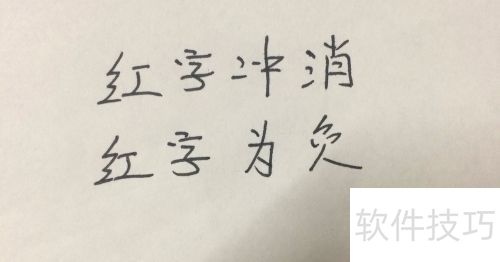 红字冲消
红字为负
软件技巧